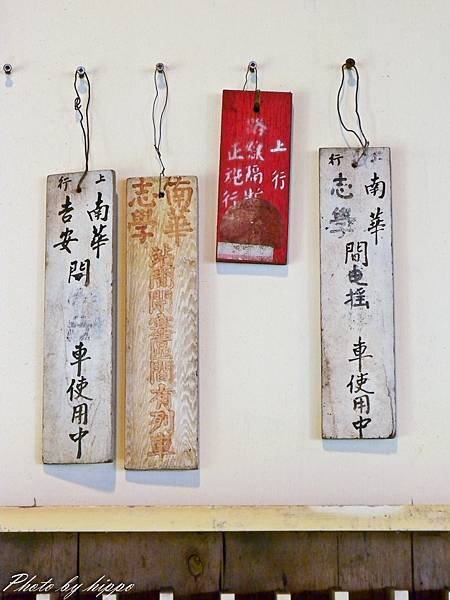 上行
南華
吉安
間
車使用中
南華
志學
站間閉塞區間有列車
上行
路線隔斷
正施行
上行
南華
志學
間電搖
車使用中
Photo by hippo